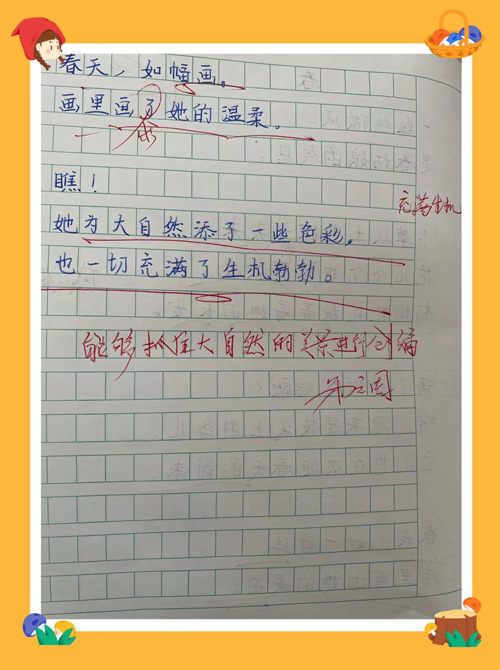 春天，如幅画。
画里画了她的温柔。
瞧！
充满生机
她为大自然添了一些色彩。
也一切充满了生机勃勃。
能够抓住大自然的美景进行创编